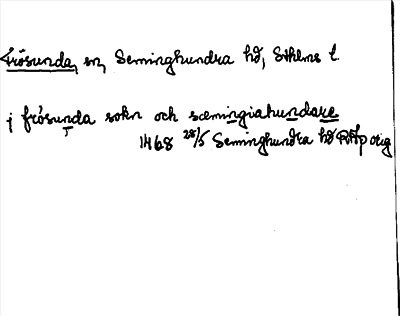 Frösunda, sn, Seminghundra hd, Sthlms l.
j frösunda sokn och sæmingiahundare
1468 28/5 Seminghundra hd RAp orig